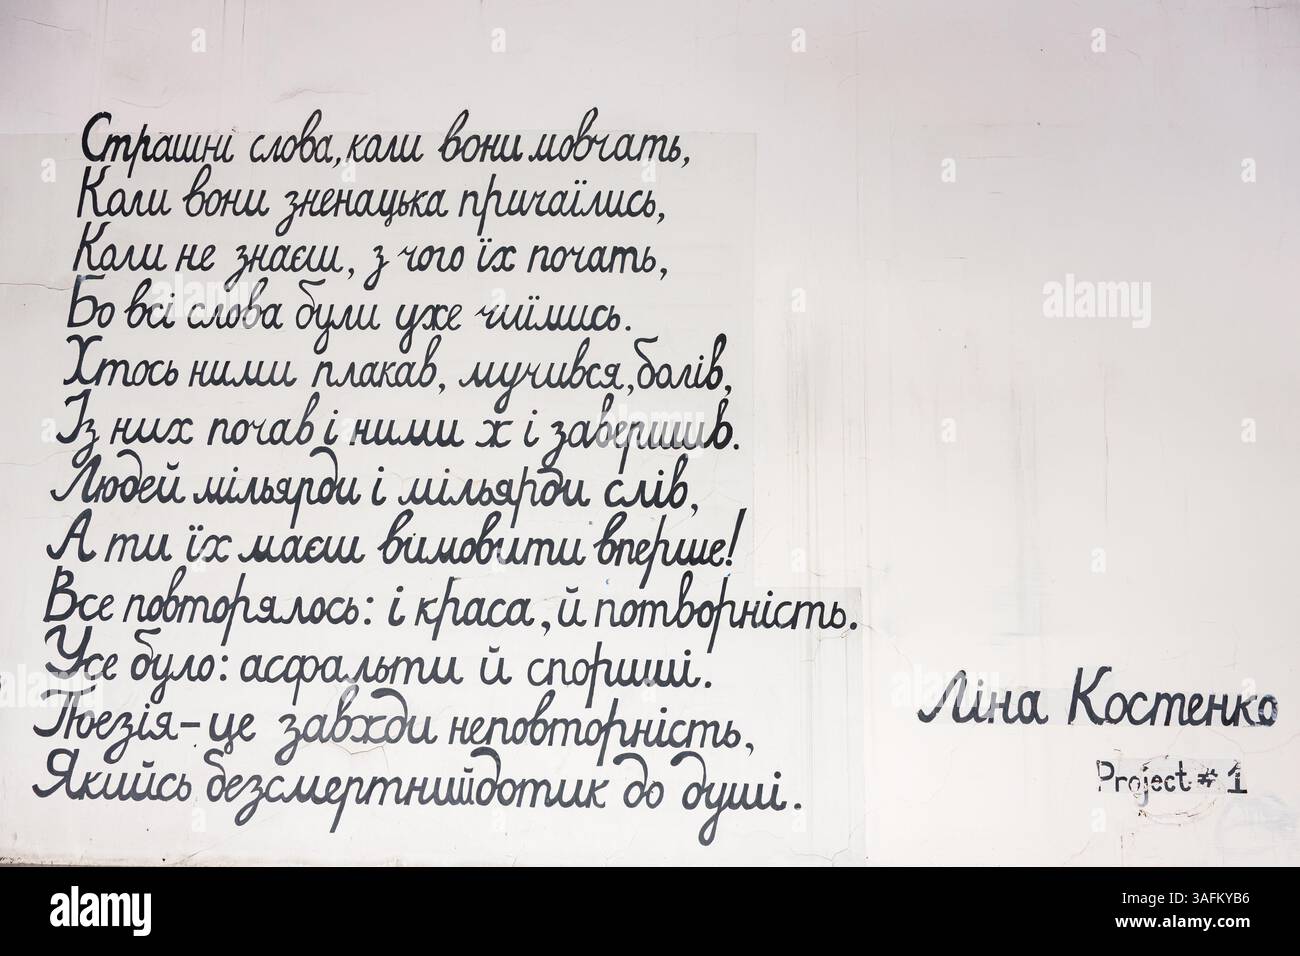 Страшні слова, коли вони мовчать,
Коли вони зненацька причаїлись,
Коли не знаєш, з чого їх почать,
Бо всі слова були уже чиїмись.
Хтось ними плакав, мучився, болів,
Із них почав і ними х і завершив.
Людей мільярди і мільярди слів,
А ти їх маєш вимовити вперше!
Все повторялось: і краса, й потворність.
Усе було: асфальти й спориші.
Поезія – це завжди неповторність,
Якийсь безсмертний дотик до душі.
Ліна Костенко
Project # 1
alamy
Image ID: 3AFKYB6
www.alamy.com